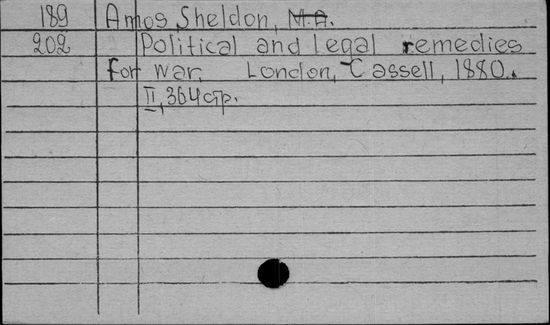 189 Amos Sheldon, M.A.
202 Political and legal remedies
for war. London, Cassell, 1880.
II, 364 стр.